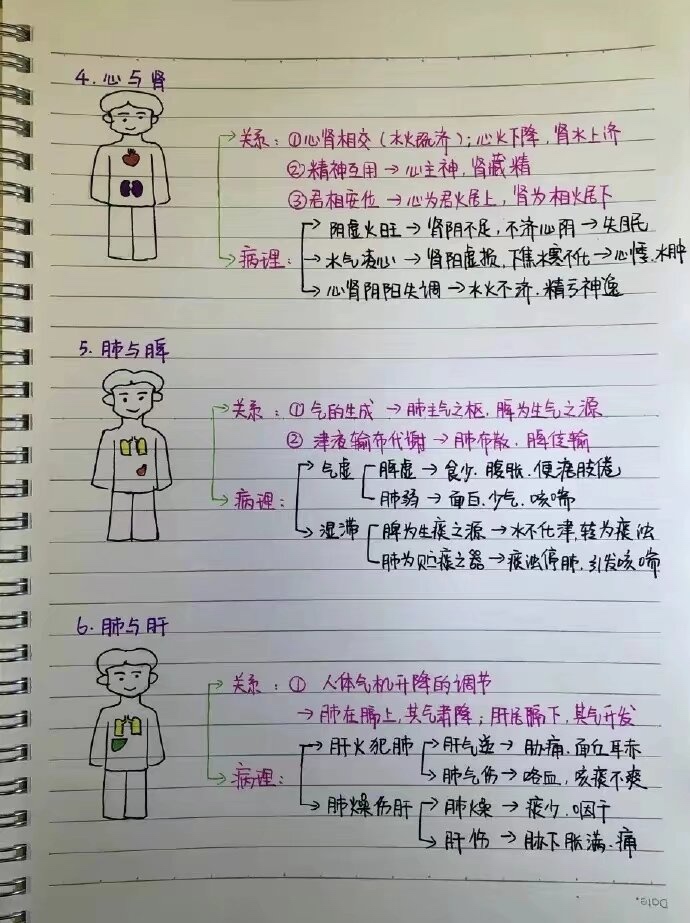 4. 心与肾
关系：①心肾相交（水火既济）；心火下降，肾水上济
②精神互用→心主神，肾藏精
③君相安位→心为君火居上，肾为相火居下
病理：
阴虚火旺→肾阴不足，不济心阴→失眠
水气凌心→肾阳虚损，下焦水寒不化→心悸、水肿
心肾阴阳失调→水火不济、精亏神逸
5. 肺与脾
关系：①气的生成→肺主气之枢，脾为生气之源
②津液输布代谢→肺布散、脾传输
病理：
气虚
脾虚→食少、腹胀、便溏肢倦
肺弱→面白、少气、咳喘
湿滞
脾为生痰之源→水不化津，转为痰浊
肺为贮痰之器→痰浊停肺，引发咳喘
6. 肺与肝
关系：①人体气机升降的调节
→肺在膈上，其气肃降；肝居膈下，其气升发
病理：
肝火犯肺
肝气逆→胁痛、面红耳赤
肺气伤→咯血，咳痰不爽
肺燥伤肝
肺燥→痰少、咽干
肝伤→胁下胀满、痛
Date.